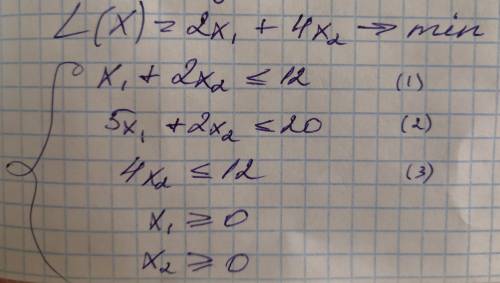 L(X) = 2x₁ + 4x₂ → min
x₁ + 2x₂ ≤ 12 (1)
5x₁ + 2x₂ ≤ 20 (2)
4x₂ ≤ 12 (3)
x₁ ≥ 0
x₂ ≥ 0